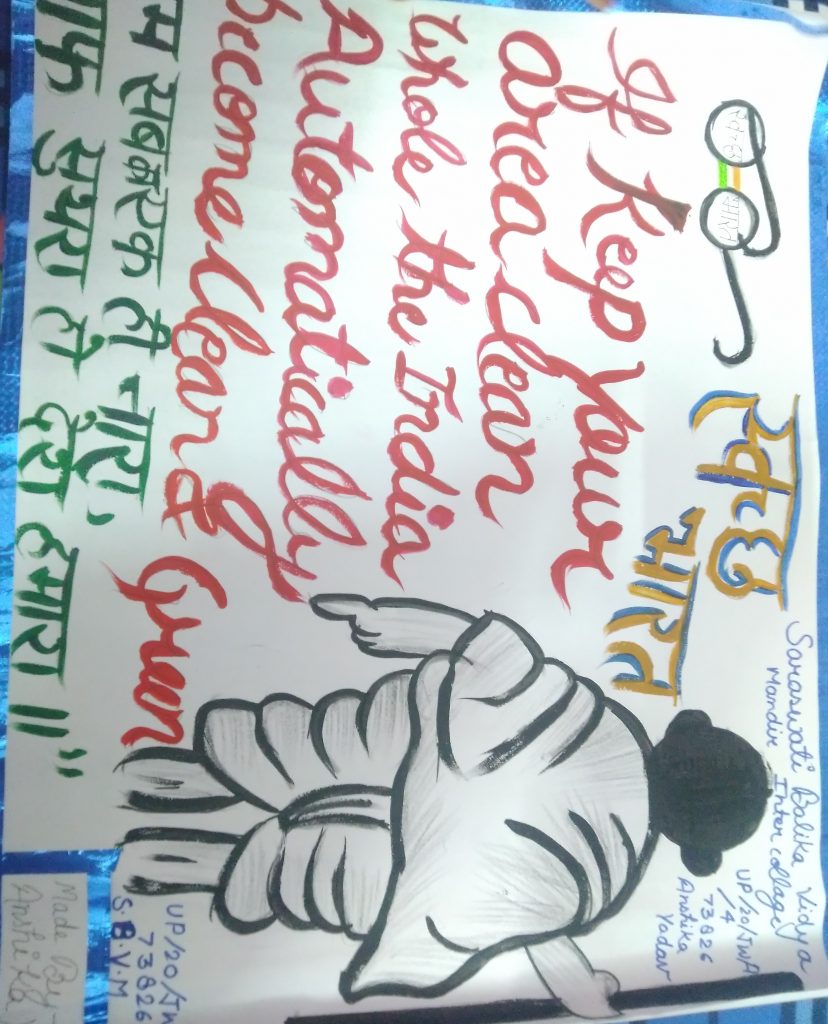 Saraswati Balika Vidya
Mandir Inter collage
UP/20/JWA
/4
73826
Anshika
Yadav
स्वछ
भारत
If Keep Your
area clean
whole the India
Automatically
become Clean & Green
म सबका एक ही नारा,
ाफ सुथरा हो देश हमारा ॥”
UP/20/JW
73826
S.B.V.M
Made By-
Anshika